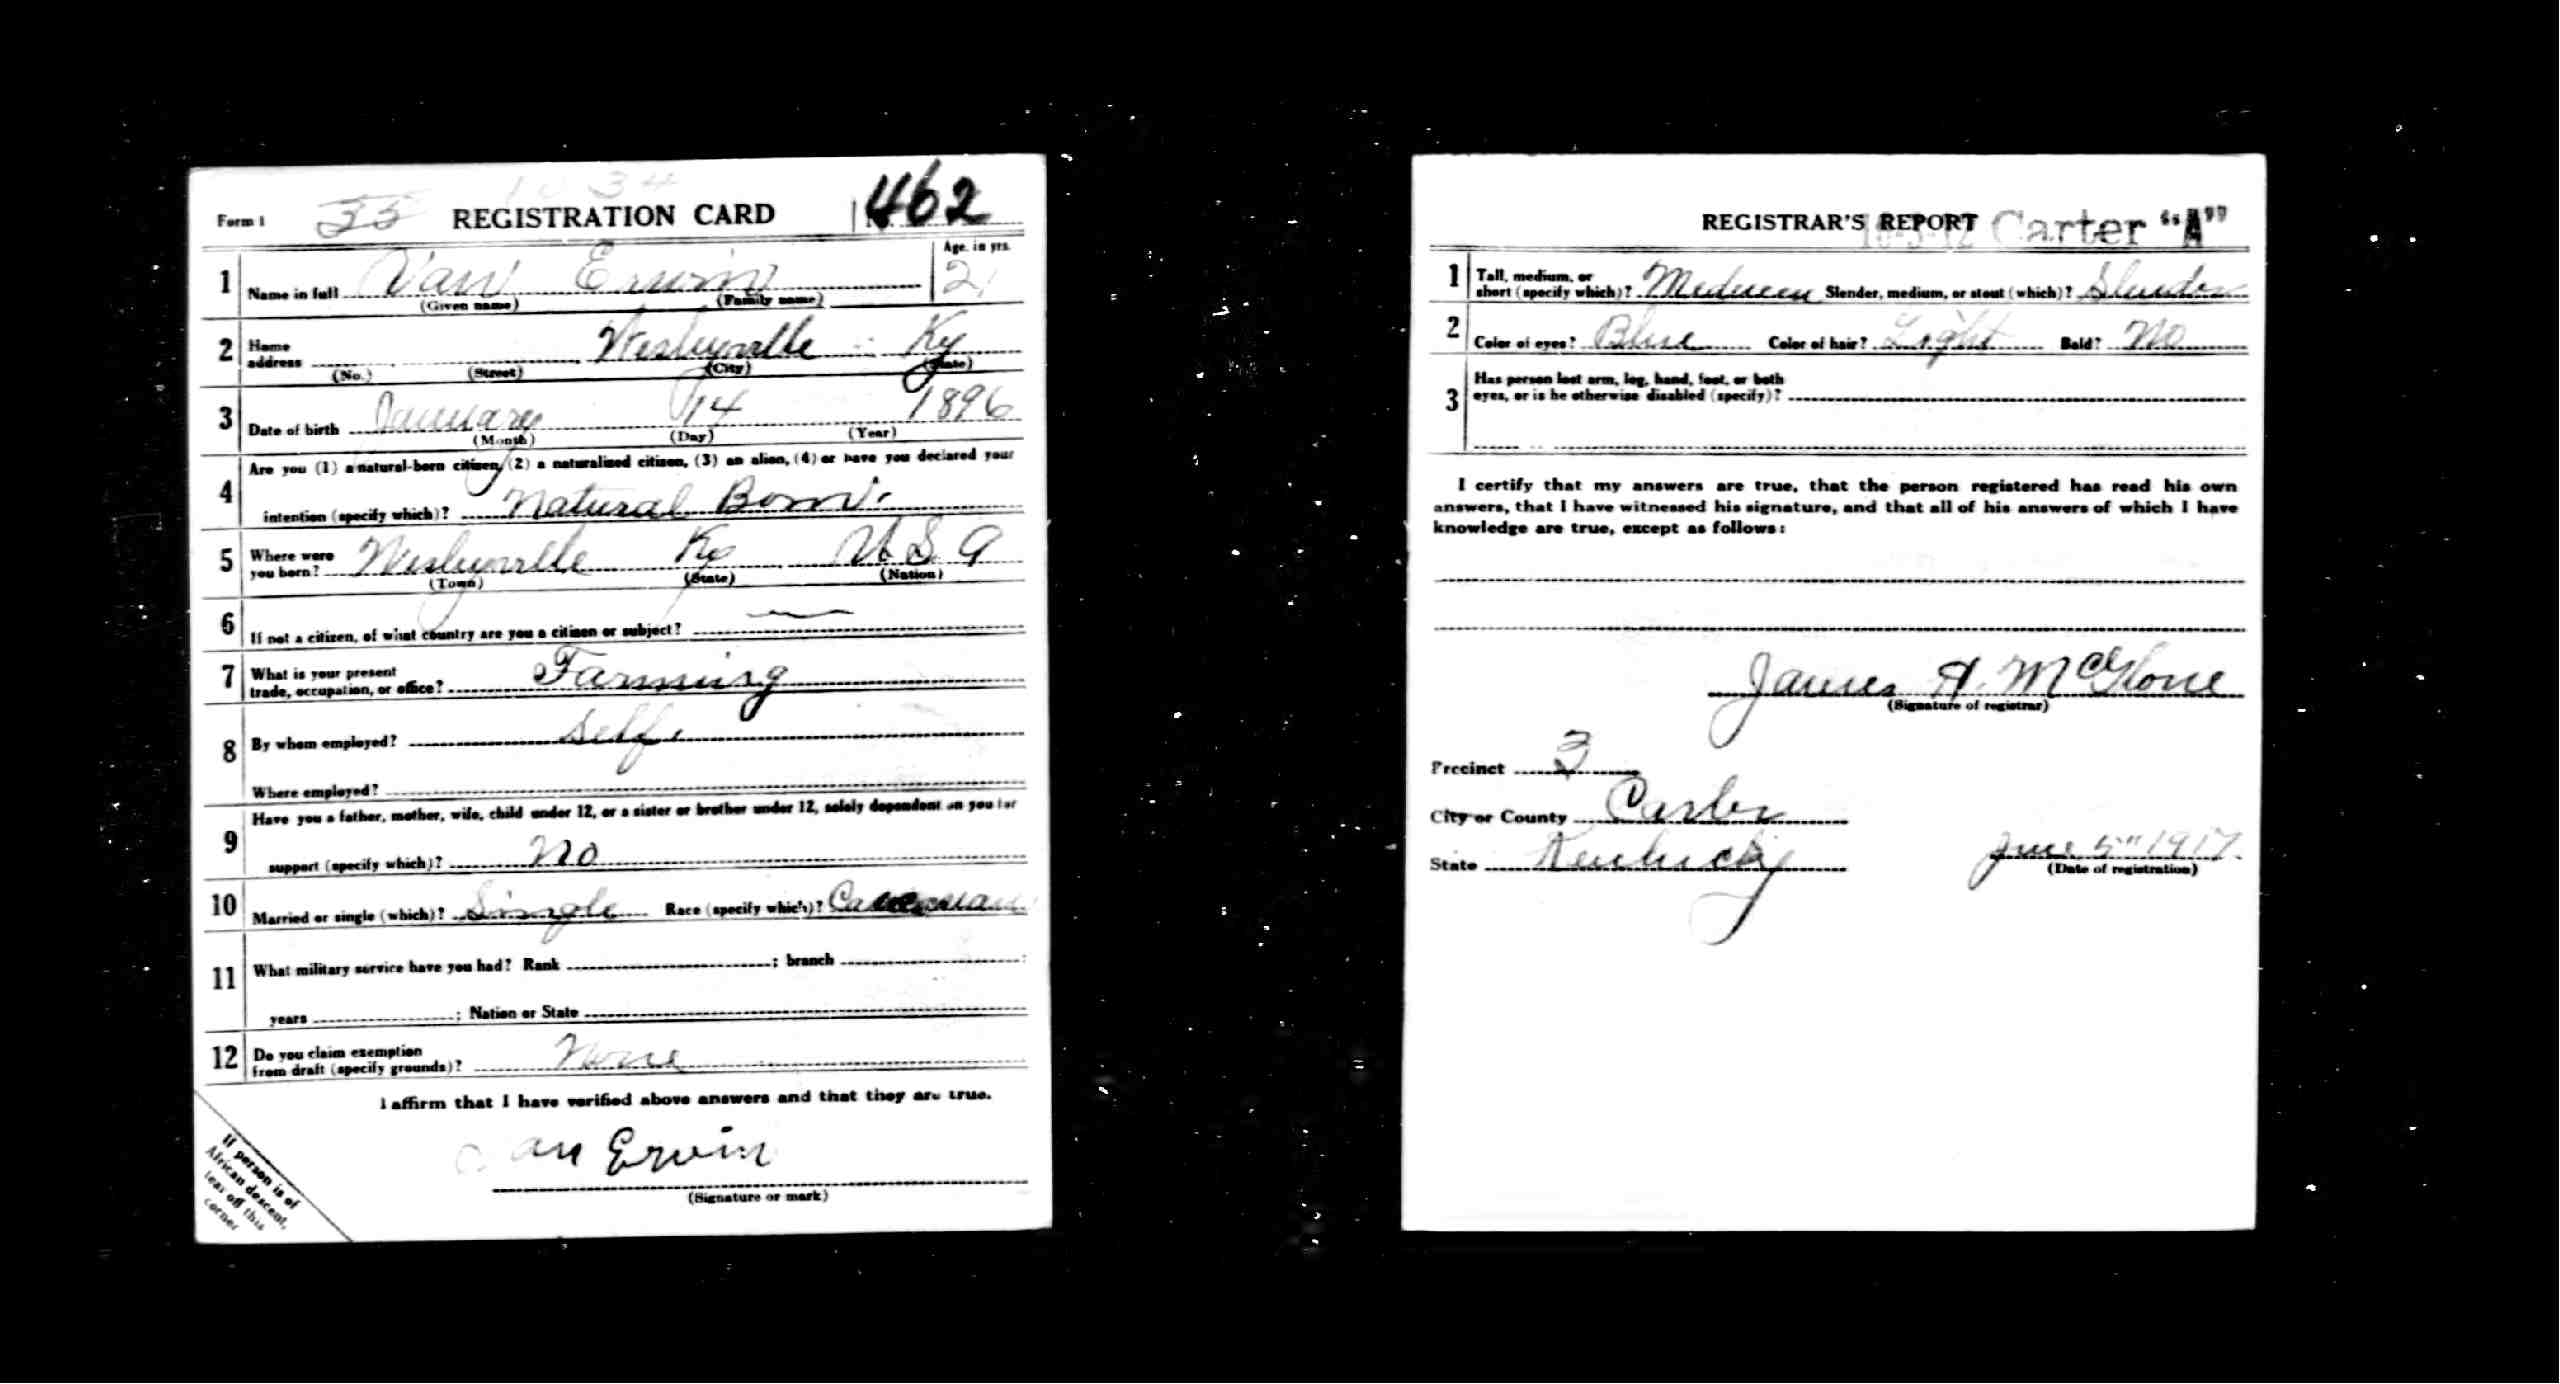 Form 1 35 REGISTRATION CARD 462
1034
Age, in yrs.
1 Name in full Van Erwin 21
(Given name) (Family name)
2 Home address Wesleyville Ky
(No.) (Street) (City) (State)
3 Date of birth January 14 1896
(Month) (Day) (Year)
4 Are you (1) a natural-born citizen, (2) a naturalized citizen, (3) an alien, (4) or have you declared your
intention (specify which)? Natural Born
5 Where were you born? Wesleyville Ky U S A
(Town) (State) (Nation)
6 If not a citizen, of what country are you a citizen or subject? —
7 What is your present trade, occupation, or office? Farming
8 By whom employed? Self
Where employed?
9 Have you a father, mother, wife, child under 12, or a sister or brother under 12, solely dependent on you for
support (specify which)? No
10 Married or single (which)? Single Race (specify which)? Caucasian
11 What military service have you had? Rank ; branch ;
years ; Nation or State
12 Do you claim exemption from draft (specify grounds)? None
I affirm that I have verified above answers and that they are true.
Van Ervin
(Signature or mark)
If person is of
African descent,
tear off this
corner
REGISTRAR'S REPORT Carter "A"
1 Tall, medium, or short (specify which)? Medium Slender, medium, or stout (which)? Slender
2 Color of eyes? Blue Color of hair? Light Bald? No
3 Has person lost arm, leg, hand, foot, or both
eyes, or is he otherwise disabled (specify)?
I certify that my answers are true, that the person registered has read his own
answers, that I have witnessed his signature, and that all of his answers of which I have
knowledge are true, except as follows:
James H. McGlone
(Signature of registrar)
Precinct 3
City or County Carter
State Kentucky June 5" 1917.
(Date of registration)